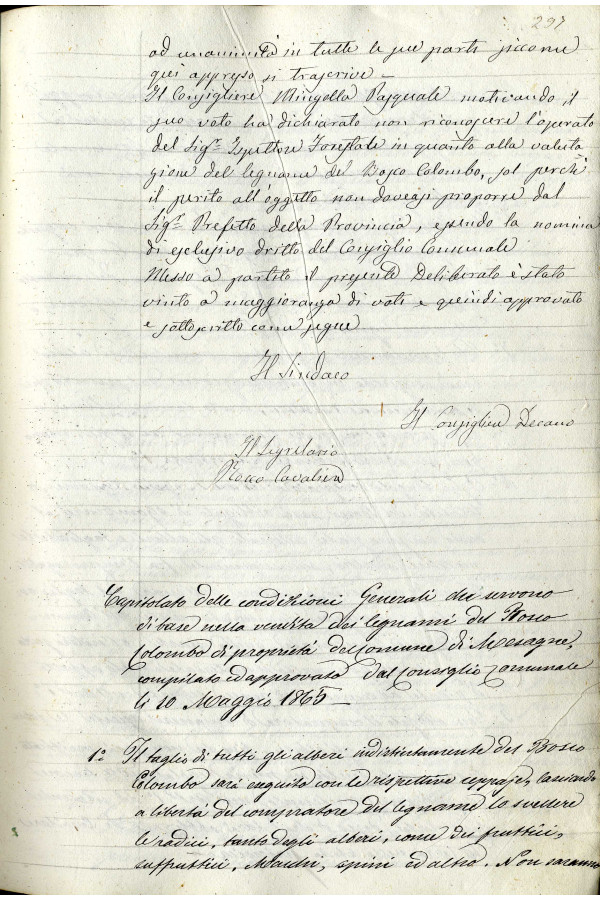 297
ad unanimità in tutte le sue parti siccome
qui appresso si trascrive _
Il Consigliere Mingolla Pasquale motivando il
suo voto ha dichiarato non riconoscere l'operato
del Sigr Ispettore Forestale in quanto alla valuta
zione del legname del Bosco Colombo, sol perchè
il perito all'oggetto non doveasi proporre dal
Sigr Prefetto della Provincia, essendo la nomina
di esclusivo dritto del Consiglio Comunale
Messo a partito il presente Deliberato è stato
vinto a maggioranza di voti e quindi approvato
e sottoscritto come segue
Il Sindaco
Il Consigliere Decano
Il Segretario
Rocco Cavaliere
Capitolato delle condizioni Generali che servono
di base nella vendita dei legnami del Bosco
Colombo di proprietà del Comune di Mesagne,
compilato ed approvato dal Consiglio Comunale
li 10 Maggio 1865 _
1º Il taglio di tutti gli alberi indistintamente del Bosco
Colombo sarà eseguito con le rispettive ceppaje, lasciando
a libertà del compratore del legname lo svellere
le radici, tanto degli alberi, come dei frutici,
suffrutici, Macchi, spini ed altro. Non saranno